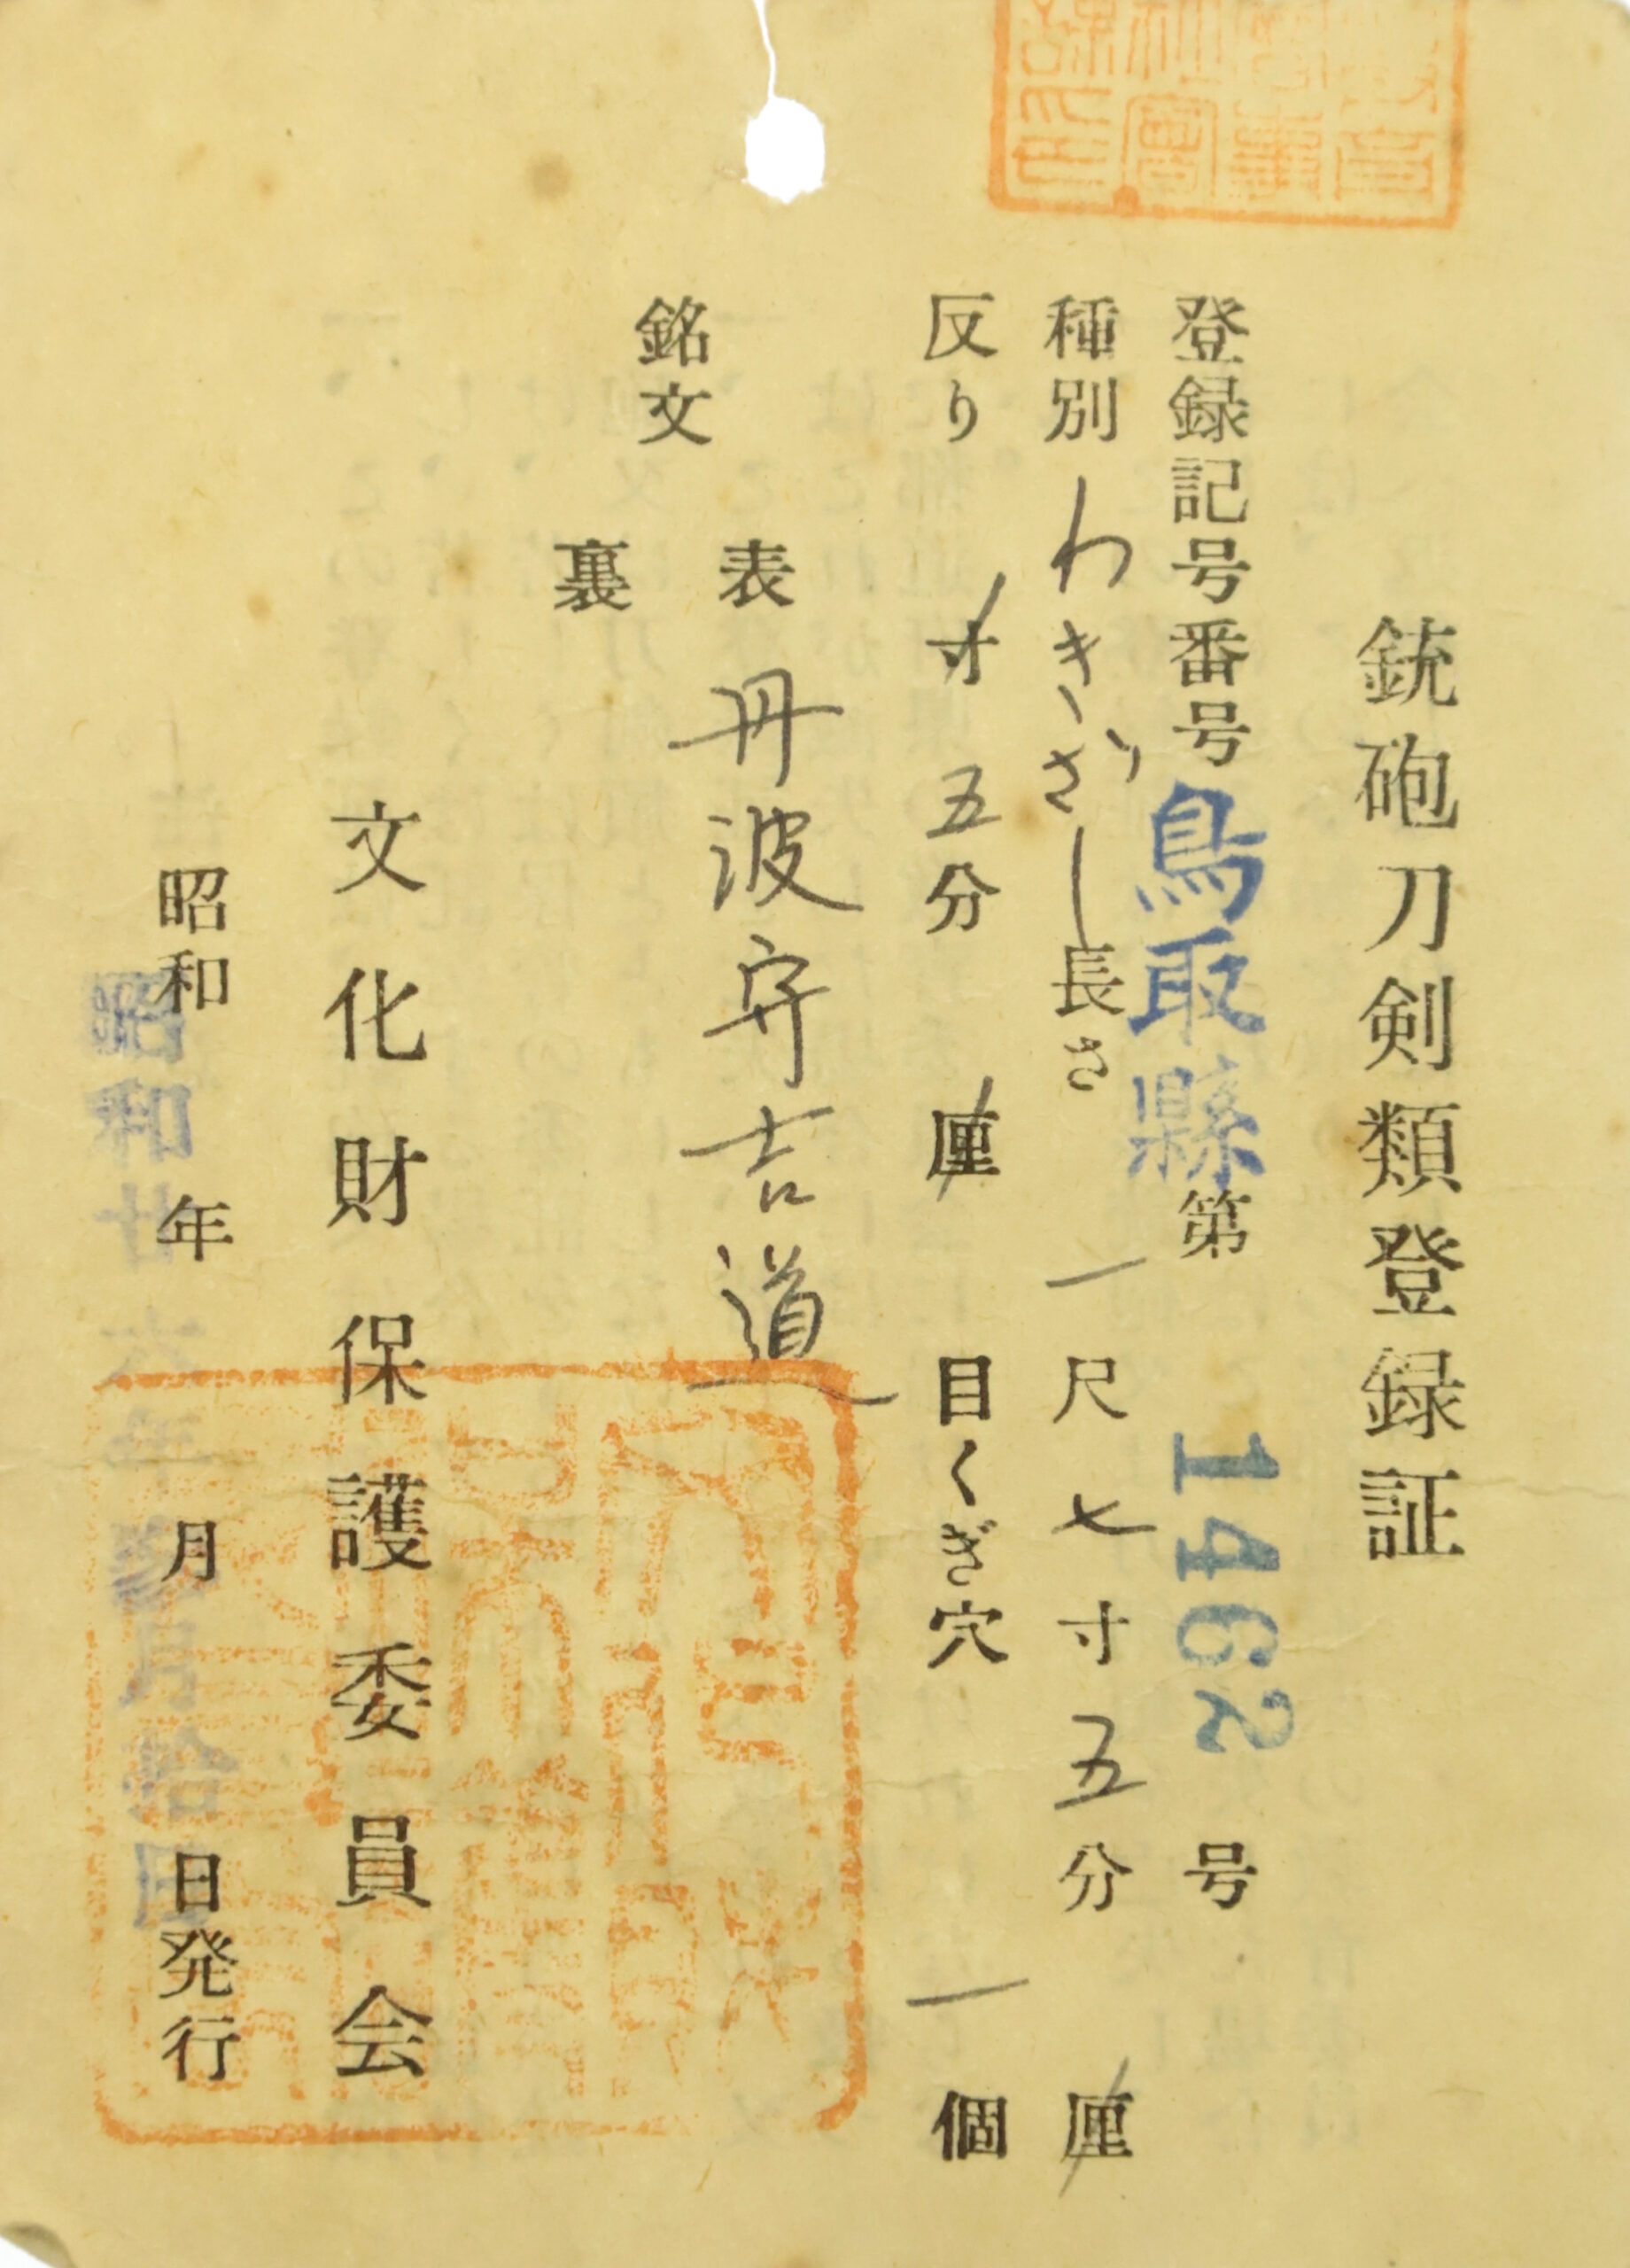 銃砲刀剣類登録証
登録記号番号鳥取縣第1462号
種別わきざし長さ一尺七寸五分厘
反り寸五分厘目くぎ穴一個
銘文
表丹波守吉道
裏
文化財保護委員会
昭和年月日発行
昭和廿六年参月拾日